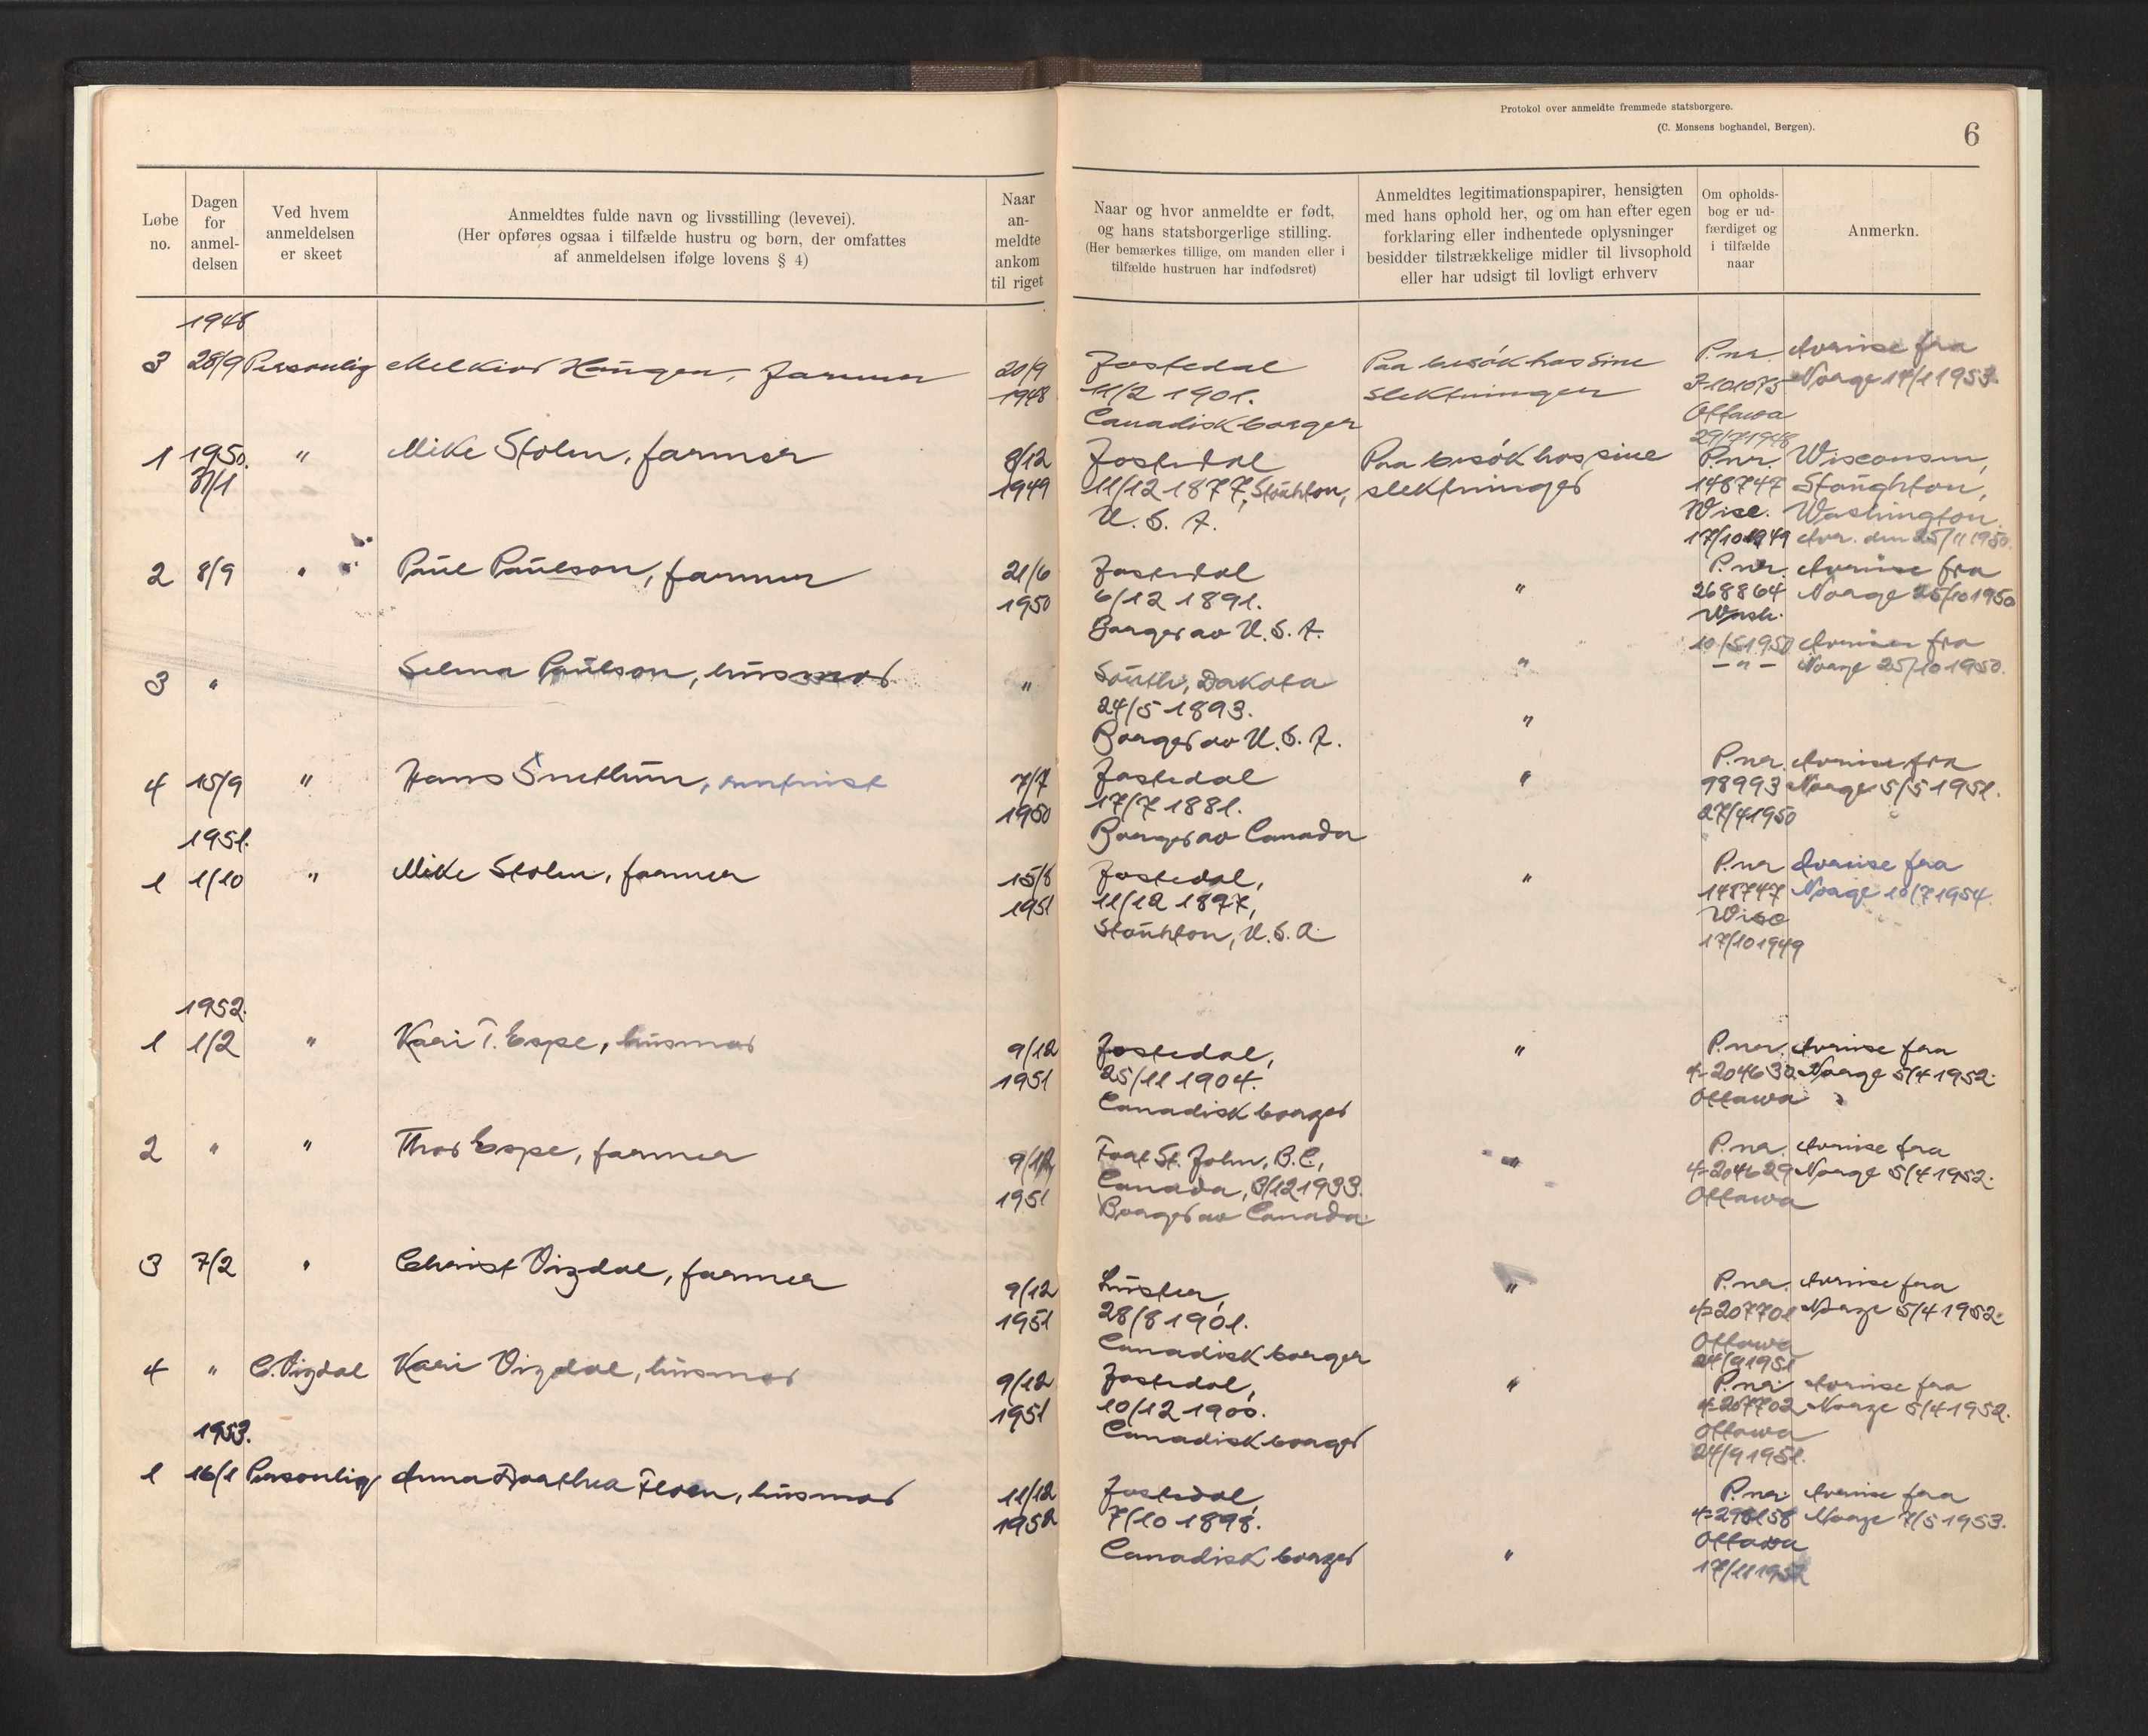 Protokol over anmeldte fremmede statsborgere.
(C. Monsens boghandel, Bergen).
6
Løbe no.
Dagen for anmel- delsen
Ved hvem anmeldelsen er skeet
Anmeldtes fulde navn og livsstilling (levevei).
(Her opføres ogsaa i tilfælde hustru og børn, der omfattes
af anmeldelsen ifølge lovens § 4)
Naar an- meldte ankom til riget
Naar og hvor anmeldte er født,
og hans statsborgerlige stilling.
(Her bemærkes tillige, om manden eller i
tilfælde hustruen har indfødsret)
Anmeldtes legitimationspapirer, hensigten
med hans ophold her, og om han efter egen
forklaring eller indhentede oplysninger
besidder tilstrækkelige midler til livsophold
eller har udsigt til lovligt erhverv
Om opholds-
bog er ud-
færdiget og
i tilfælde
naar
Anmerkn.
1948
3 28/9 Personlig Melkior Haugen, farmer 20/9 Jostedal Paa besøk hos sine P.nr. Avreise fra
1948 11/2 1901. slektninger 3-101075 Norge 14/1 1953.
Canadisk borger Ottawa
29/7 1948
1 1950. " Mike Stolen, farmer 8/12 Jostedal Paa besøk hos sine P.nr. Wisconsin,
31/1 1949 11/12 1877, Stouhton, slektninger 148747 Stoughton,
U. S. A. Wisc. Washington.
17/10 1949 Avr. den 25/11 1950.
2 8/9 " Paul Paulson, farmer 21/6 Jostedal " P.nr. Avreise fra
1950 6/12 1891. 268864 Norge 25/10 1950
Borger av U. S. A. Wash.
10/5 1950 Avreise fra
3 " Selma Paulson, husmor " South, Dakota " — " — Norge 25/10 1950.
24/5 1893. "
Borger av U. S. A.
4 15/9 " Hans Snethun, 7/7 Jostedal " P.nr. Avreise fra
1950 17/7 1881. 98993 Norge 5/5 1951.
Borger av Canada 27/4 1950
1951.
1 1/10 " Mike Stolen, farmer 15/8 Jostedal, " P.nr Avreise fra
1951 11/12 1897, 148747 Norge 10/7 1954.
Stouhton, U. S. A. Wisc
17/10 1949
1952.
1 1/2 " Kari T. Espe, husmor 9/12 Jostedal, " P.nr. Avreise fra
1951 25/11 1904. 4-204630 Norge 5/4 1952.
Canadisk borger Ottawa
2 " " Thor Espe, farmer 9/12 Fort St. John, B.C., " P.nr. Avreise fra
1951 Canada, 3/12 1933. 4-204629 Norge 5/4 1952.
Borger av Canada Ottawa
3 7/2 " Christ Vigdal, farmer 9/12 Luster, " P.nr. Avreise fra
1951 28/8 1901. 4-207701 Norge 5/4 1952.
Canadisk borger Ottawa
24/9 1951
4 " C. Vigdal Kari Vigdal, husmor 9/12 Jostedal, " P.nr. Avreise fra
1951 10/12 1900. 4-207702 Norge 5/4 1952.
Canadisk borger Ottawa
24/9 1951.
1953.
1 16/1 Personlig Anna Dorthea Floen, husmor 11/12 Jostedal, P.nr. Avreise fra
1952 7/10 1898. 4-298158 Norge 7/5 1953.
Canadisk borger " Ottawa
17/11 1952